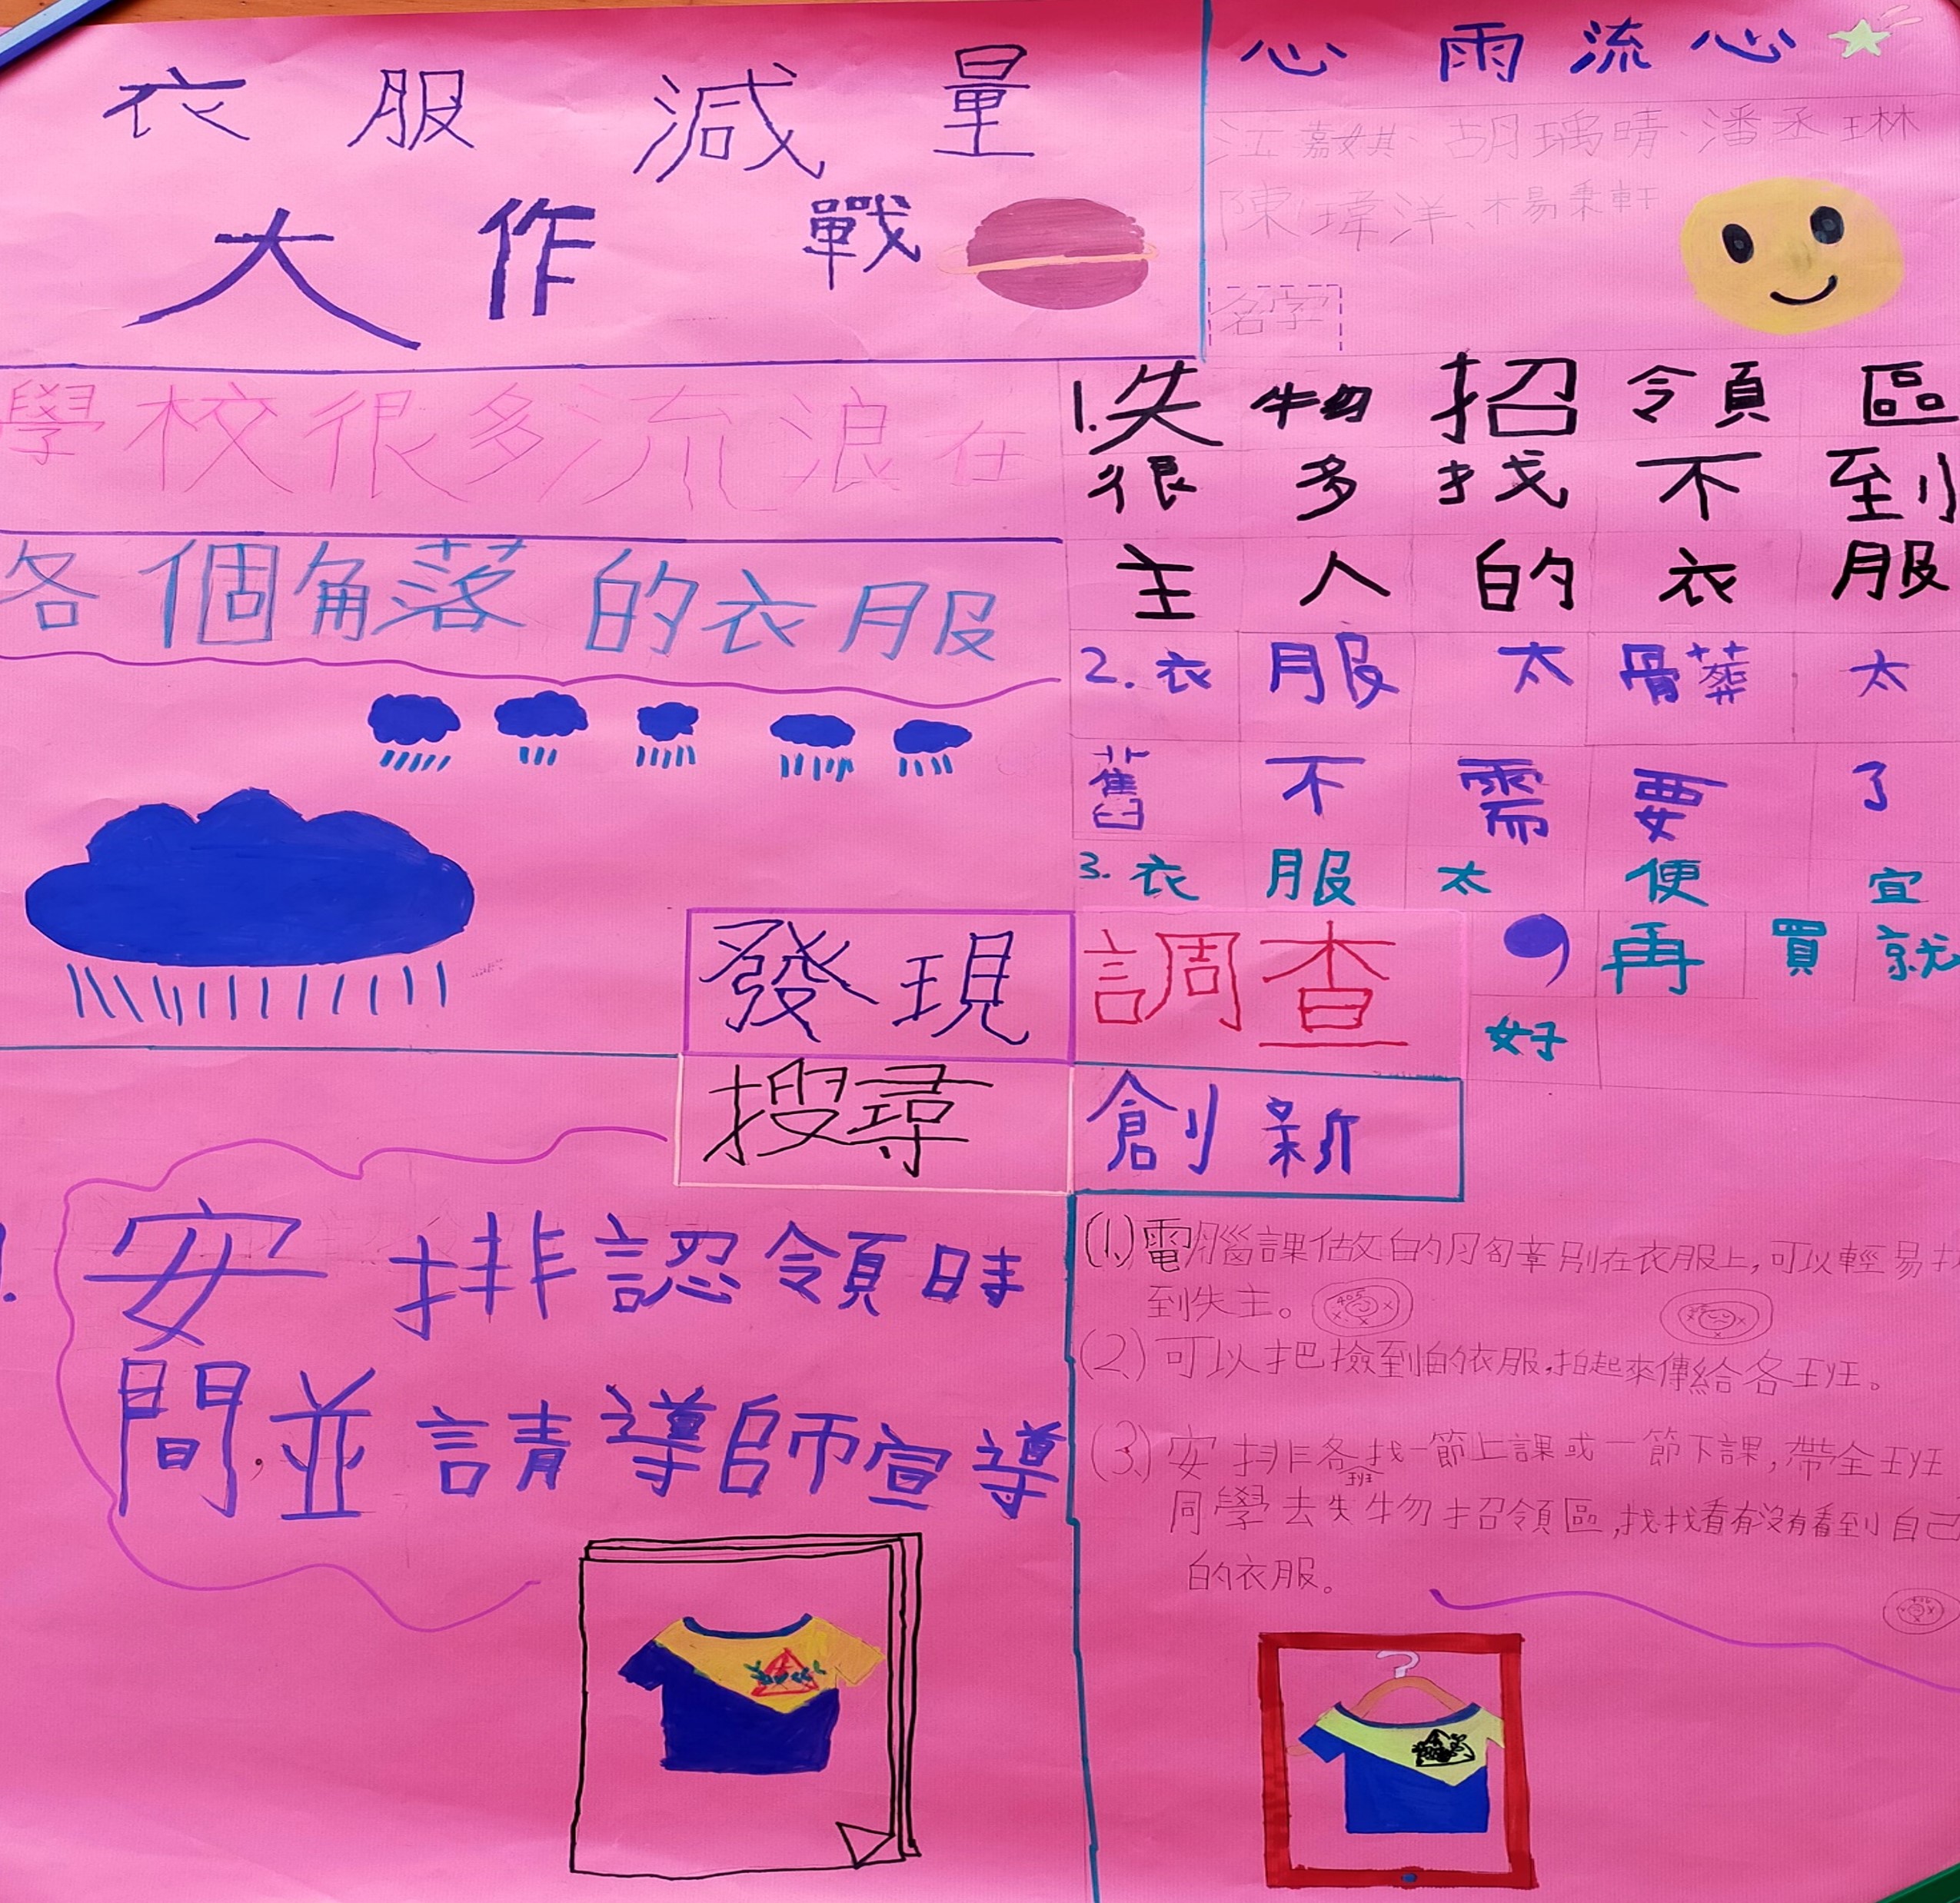 衣服減量
大作戰
心雨流心
江嘉娸、胡瑀晴、潘丞琳
陳瑋洋、楊秉軒
名字
學校很多流浪在
各個角落的衣服
1.失物招領區
很多找不到
主人的衣服
2.衣服太髒太
舊不需要了
3.衣服太便宜
,再買就
好
發現
調查
搜尋
創新
安排認領時
間,並請導師宣導
(1.)電腦課做的胸章別在衣服上,可以輕易找
到失主。
(2.)可以把撿到的衣服,拍起來傳給各班。
(3.)安排各班找一節上課或一節下課,帶全班
同學去失物招領區,找找看有沒有看到自己
的衣服。